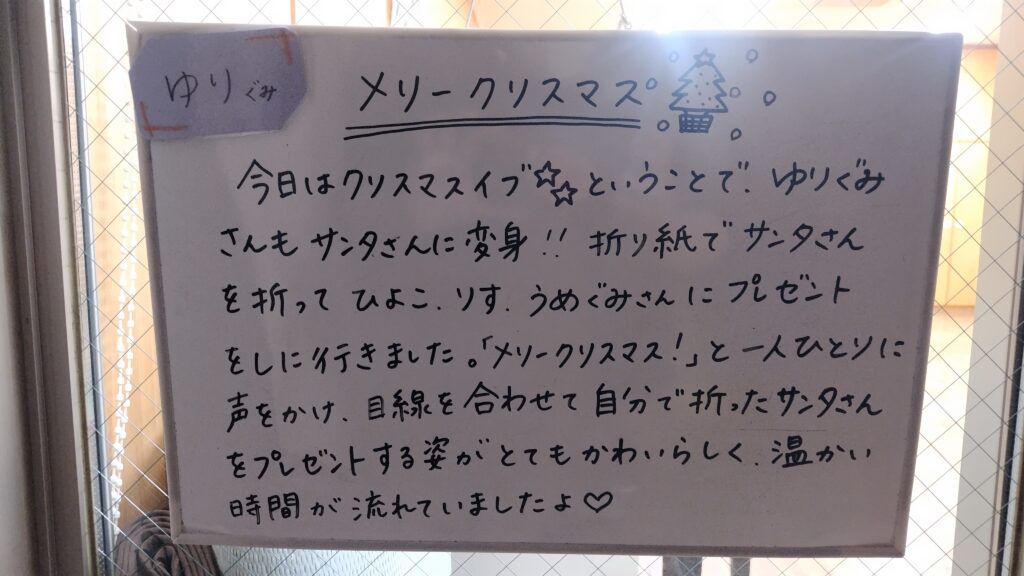 ゆりぐみ
メリークリスマス
今日はクリスマスイブ☆☆ということで、ゆりぐみ
さんもサンタさんに変身!! 折り紙でサンタさん
を折って ひよこ、りす、うめぐみさんにプレゼント
をしに行きました。「メリークリスマス!」と一人ひとりに
声をかけ、目線を合わせて自分で折ったサンタさん
をプレゼントする姿がとてもかわいらしく、温かい
時間が流れていましたよ♡